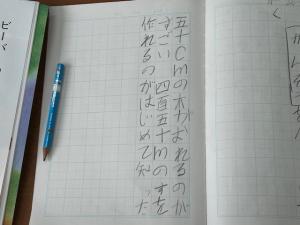 五十Cmの木がおれるのが
すごい 四百五十mのすを
作れるのがはじめて知った
ビーバ